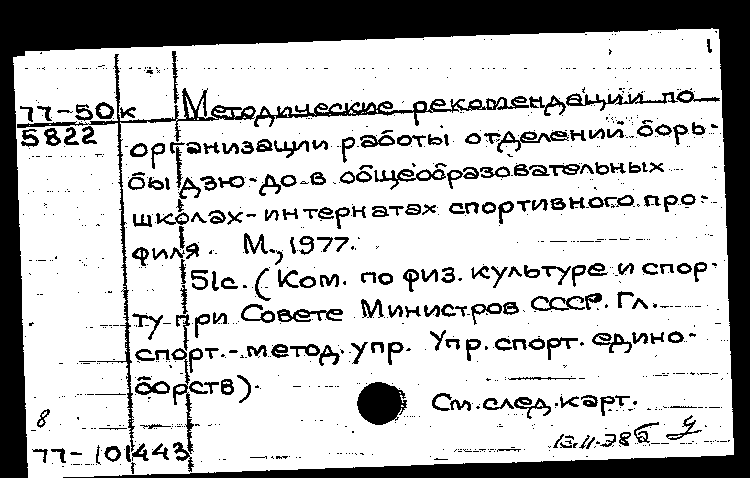 1
77-50к Методические рекомендации по
5822 организации работы отделений борь-
бы дзю-до в общеобразовательных
школах-интернатах спортивного про-
филя. М., 1977.
51с. (Ком. по физ. культуре и спор-
ту при Совете Министров СССР. Гл.
спорт.-метод. упр. Упр. спорт. едино-
борств).
См. след. карт.
8
77-101443